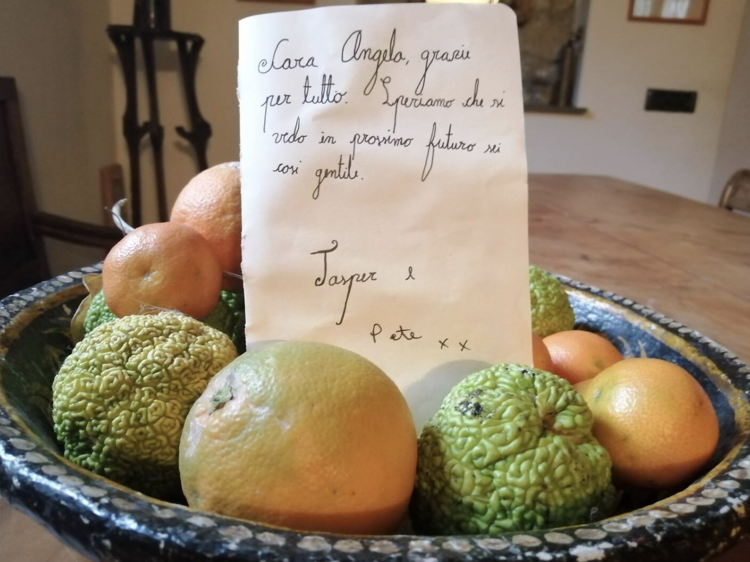 Cara Angela, grazie
per tutto. Speriamo che si
vedo in prossimo futuro sei
cosi gentile.
Jasper e
Pete x x